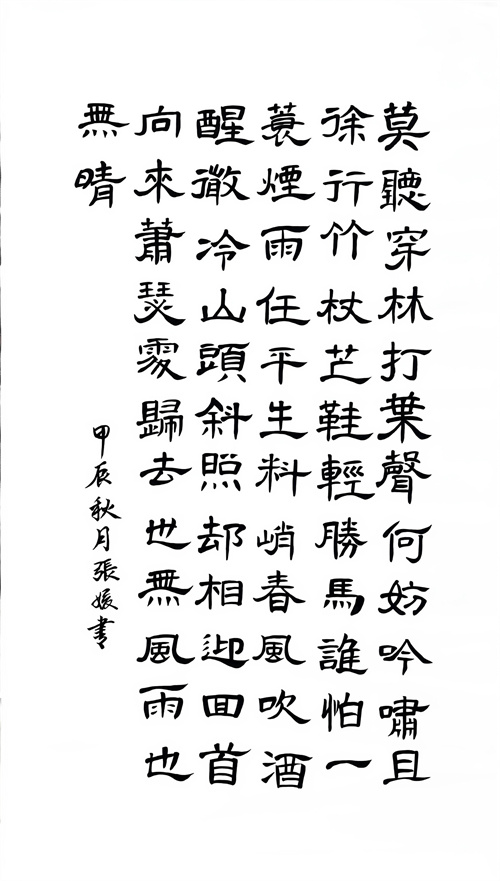 莫聽穿林打葉聲何妨吟嘯且
徐行竹杖芒鞋輕勝馬誰怕一
蓑煙雨任平生料峭春風吹酒
醒微冷山頭斜照却相迎回首
向來蕭瑟處歸去也無風雨也
無晴
甲辰秋月張媛書